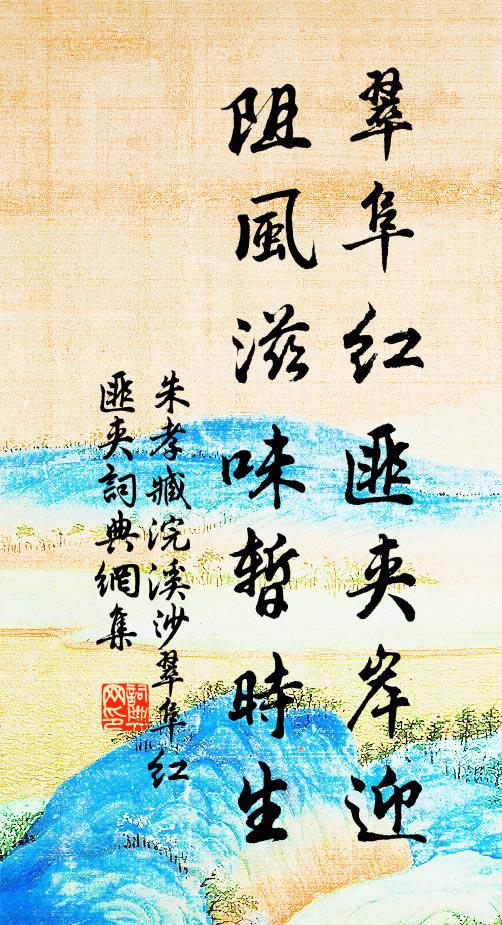 翠阜紅匪夾岸迎
阻風滋味暫時生
朱孝臧浣溪沙翠阜紅
匪夾詞典網集
詞典网印